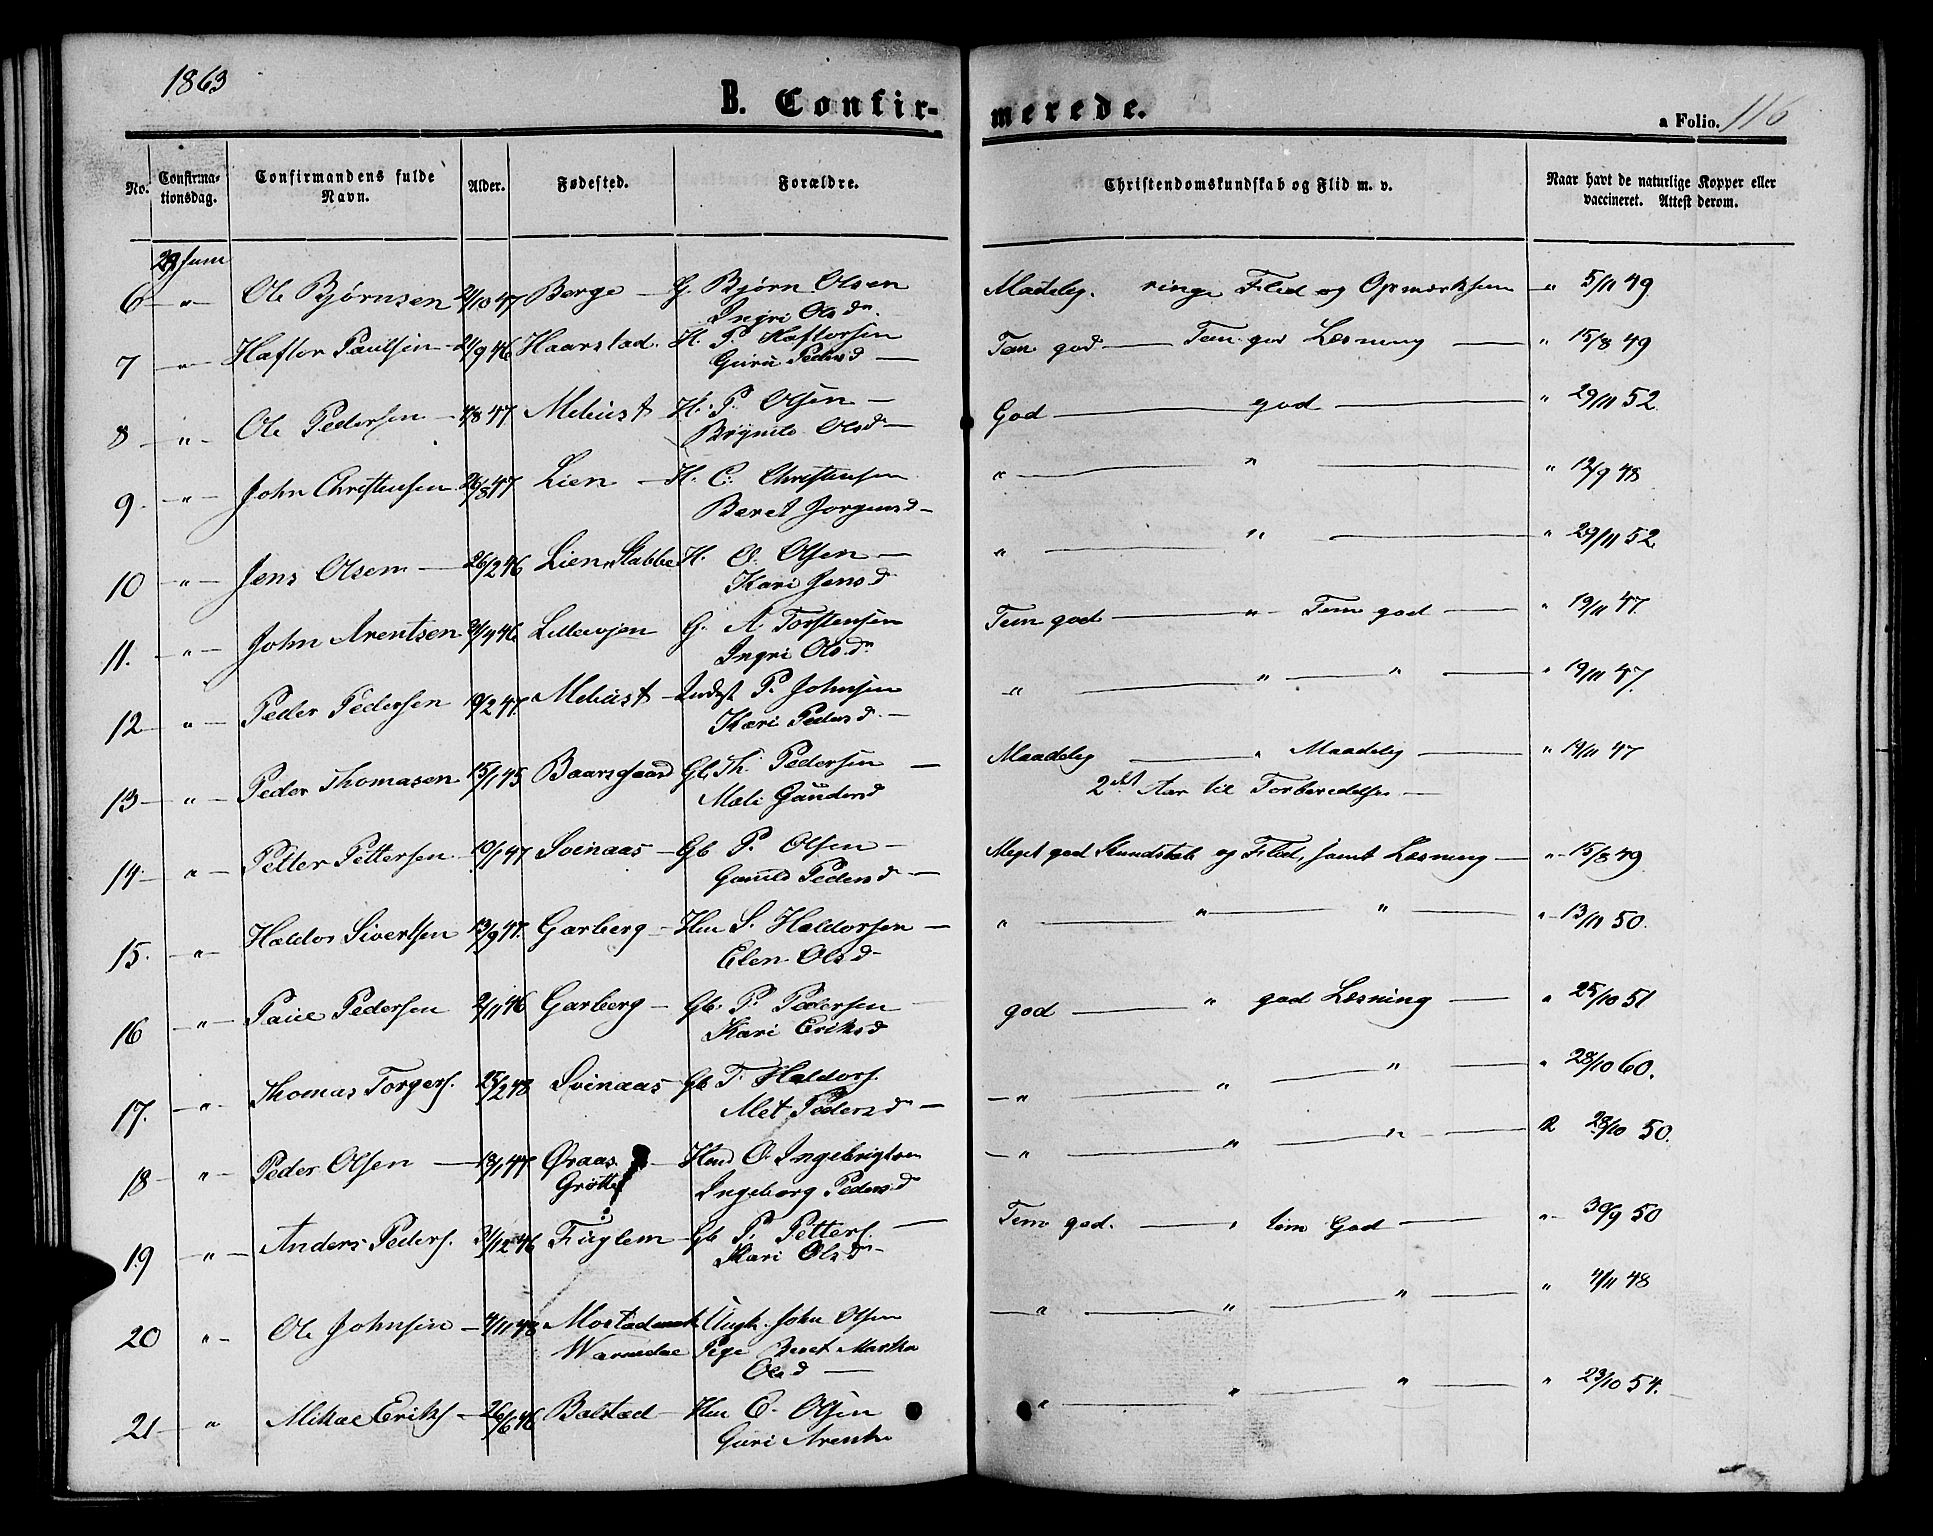 1863
B. Confir-
merede.
a Folio. 116
No. Confirmationsdag. Confirmandens fulde Navn. Alder. Fødested. Forældre. Christendomskundskab og Flid m. v. Naar havt de naturlige Kopper eller vaccineret. Attest derom.
29 Juni
6 " Ole Bjørnsen 2/10 47 Berge G. Bjørn Olsen Maadelig. ringe Flid og Opmærksom " 5/11 49
Ingri Olsdr.
7 " Haftor Paulsen 2/9 46 Haarstad. H. P. Haftorsen Tem god Tem god Læsning " 15/8 49
Guru Pedersd
8 " Ole Pedersen 4/8 47 Mehust H. P. Olsen God god " 29/11 52
Brynild Olsd
9 " John Christensen 26/8 47 Lien H. C. Christensen " " " 12/9 48
Beret Jørgensd
10 " Jens Olsen 26/2 46 Lien, Stabbe H. O. Olsen " " " 29/11 52
Kari Jensd
11. " John Arentsen 46 Lillevjen G. A. Torstensen Tem god " Tem god " 19/11 47.
Ingri Olsd.
12 " Peder Pedersen 10/2 47. Mehust Inderst P. Johnsen " " " " 19/11 47.
Kari Pedersd
13 " Peder Thomasen 15/1 45 Baarsgaard Gb Th. Pedersen Maadelig " Maadelig " 19/11 47
Mali Gundersd 2det Aar til Forberedelse
14 " Petter Pettersen 10/1 47 Svinaas Gb P. Olsen Meget god Kundskab og Flid, samt Læsning " 15/8 49
Gunild Pedersd
15. " Haldor Sivertsen 13/9 47. Garberg Hm S. Haldorsen " " " " 13/11 50.
Elen Olsd
16 " Paul Pedersen 2/11 46 Garberg Gb. P. Pedersen god " god Læsning " 25/10 51
Kari Eriksd
17. " Thomas Torgers. 25/2 48 Svinaas Gb T. Haldors. " " " " 28/10 60.
Met Pedersd
18 " Peder Olsen 13/1 47. Øraas Hmd O. Ingebrigtsen " " " R 28/10 50.
Grøtte Ingeborg Pedersd
19 " Anders Peders. 3/12 46 Fuglem Gb P. Petters. Tem god. " tem God " 30/9 50
Kari Olsd
20 " Ole Johnsen 4/11 48 Mostadmark Ungk. John Olsen " " " " 4/11 48
Pige Beret Martha
Olsd
21 " Mikal Eriks 26/6 46 Balstad Hm E. Olsen " " " " 23/10 54.
Guri Arents